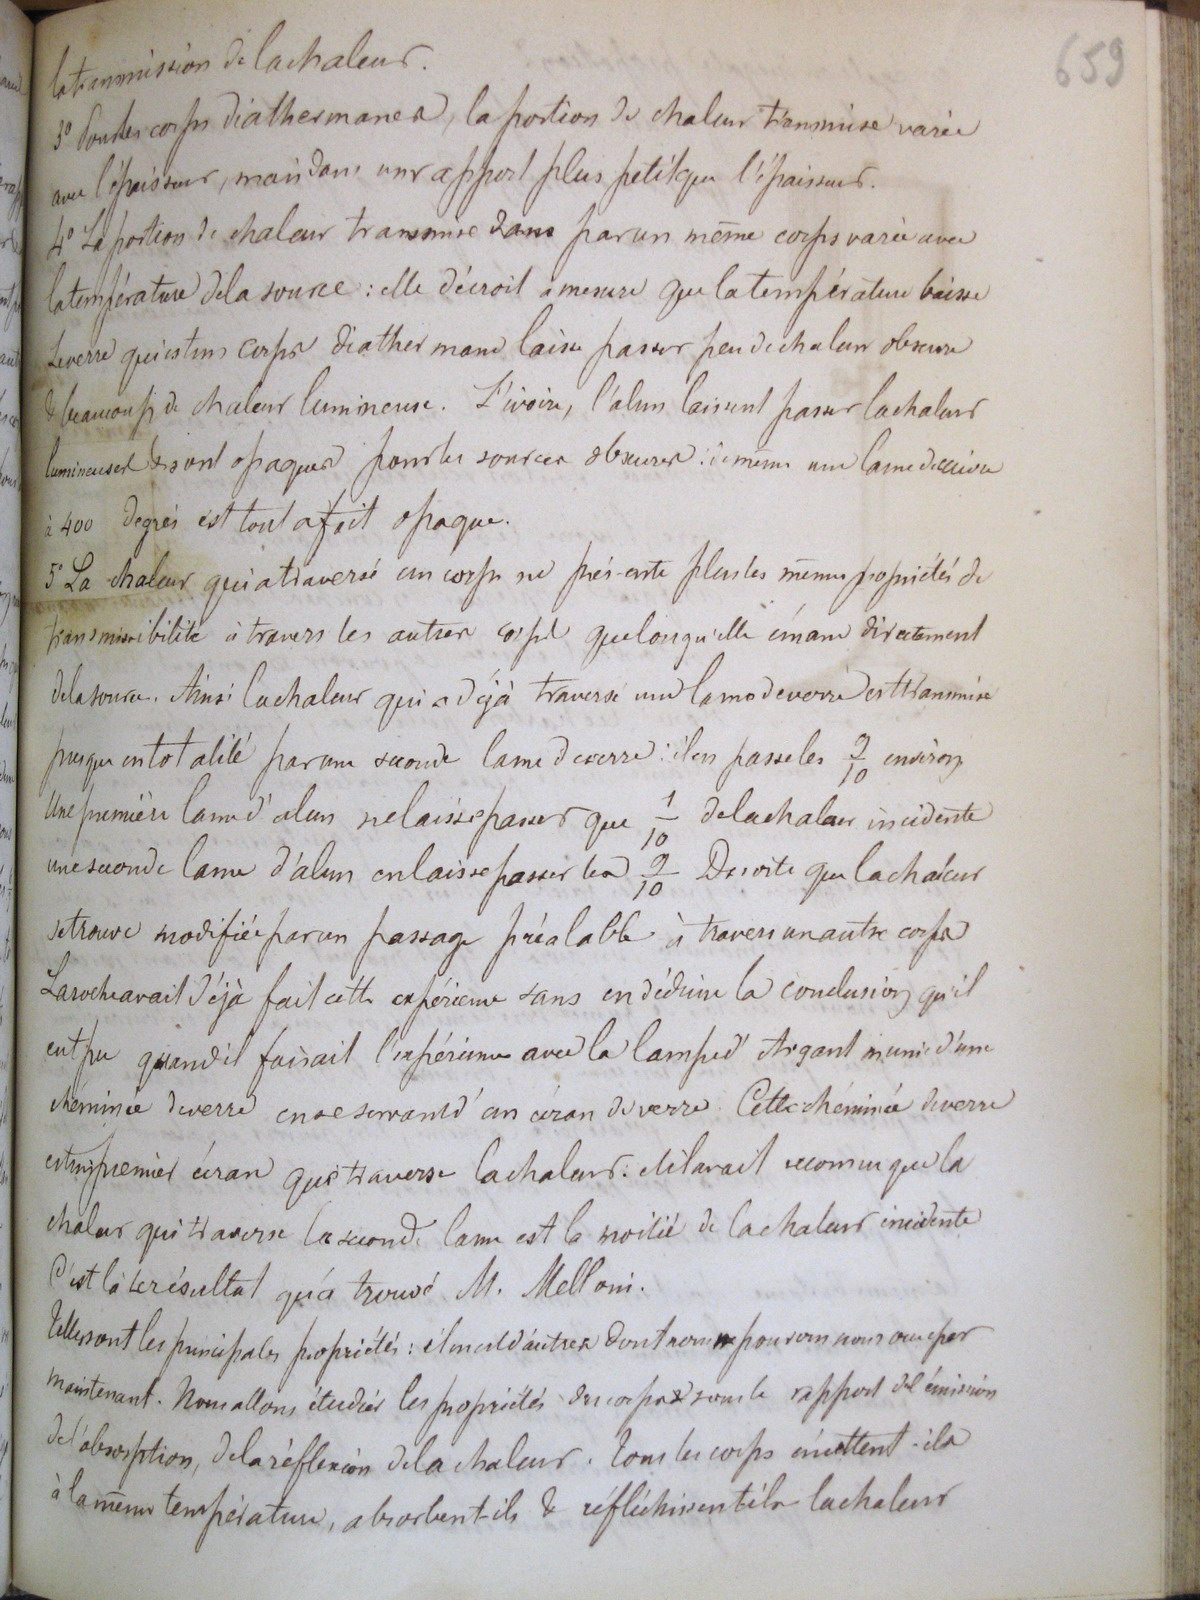 659
la transmission de la chaleur.
3° Pour les corps diathermanes, la portion de chaleur transmise varie
avec l'épaisseur, mais dans un rapport plus petit que l'épaisseur.
4° La portion de chaleur transmise dans par un même corps varie avec
la température de la source : elle décroit à mesure que la température baisse
Le verre qui est un corps diathermane laisse passer peu de chaleur obscure
& beaucoup de chaleur lumineuse. L'ivoire, l'alun laissent passer la chaleur
lumineuse & sont opaques pour les sources obscures : de même une lame de cuivre
à 400 degrés est tout a fait opaque.
5° La chaleur qui a traversé un corps ne présente plus les mêmes propriétés de
transmissibilité à travers les autres corps que lorsqu'elle émane directement
de la source. Ainsi la chaleur qui a déjà traversé une lame de verre est transmise
presque en totalité par une seconde lame de verre : il en passe les 9/10 environ
Une première lame d'alun ne laisse passer que 1/10 de la chaleur incidente
une seconde lame d'alun en laisse passer les 9/10 De sorte que la chaleur
se trouve modifiée par un passage préalable à travers un autre corps
Laroche avait déjà fait cette expérience sans en déduire la conclusion qu'il
eut pu quand il faisait l'expérience avec la lampe d'Argant munie d'une
chéminée de verre en se servant d'un écran de verre. Cette chéminée de verre
est un premier écran que traverse la chaleur : & il avait reconnu que la
chaleur qui traverse la seconde lame est la moitié de la chaleur incidente
C'est là le résultat qu'a trouvé M. Melloni.
Telles sont les principales propriétés : il en est d'autres dont nous ne pouvons nous occuper
maintenant. Nous allons étudier les propriétés des corps sous le rapport de l'émission
de l'absorption, de la réflexion de la chaleur. Tous les corps émettent-ils
à la même température, absorbent-ils & réfléchissent ils la chaleur